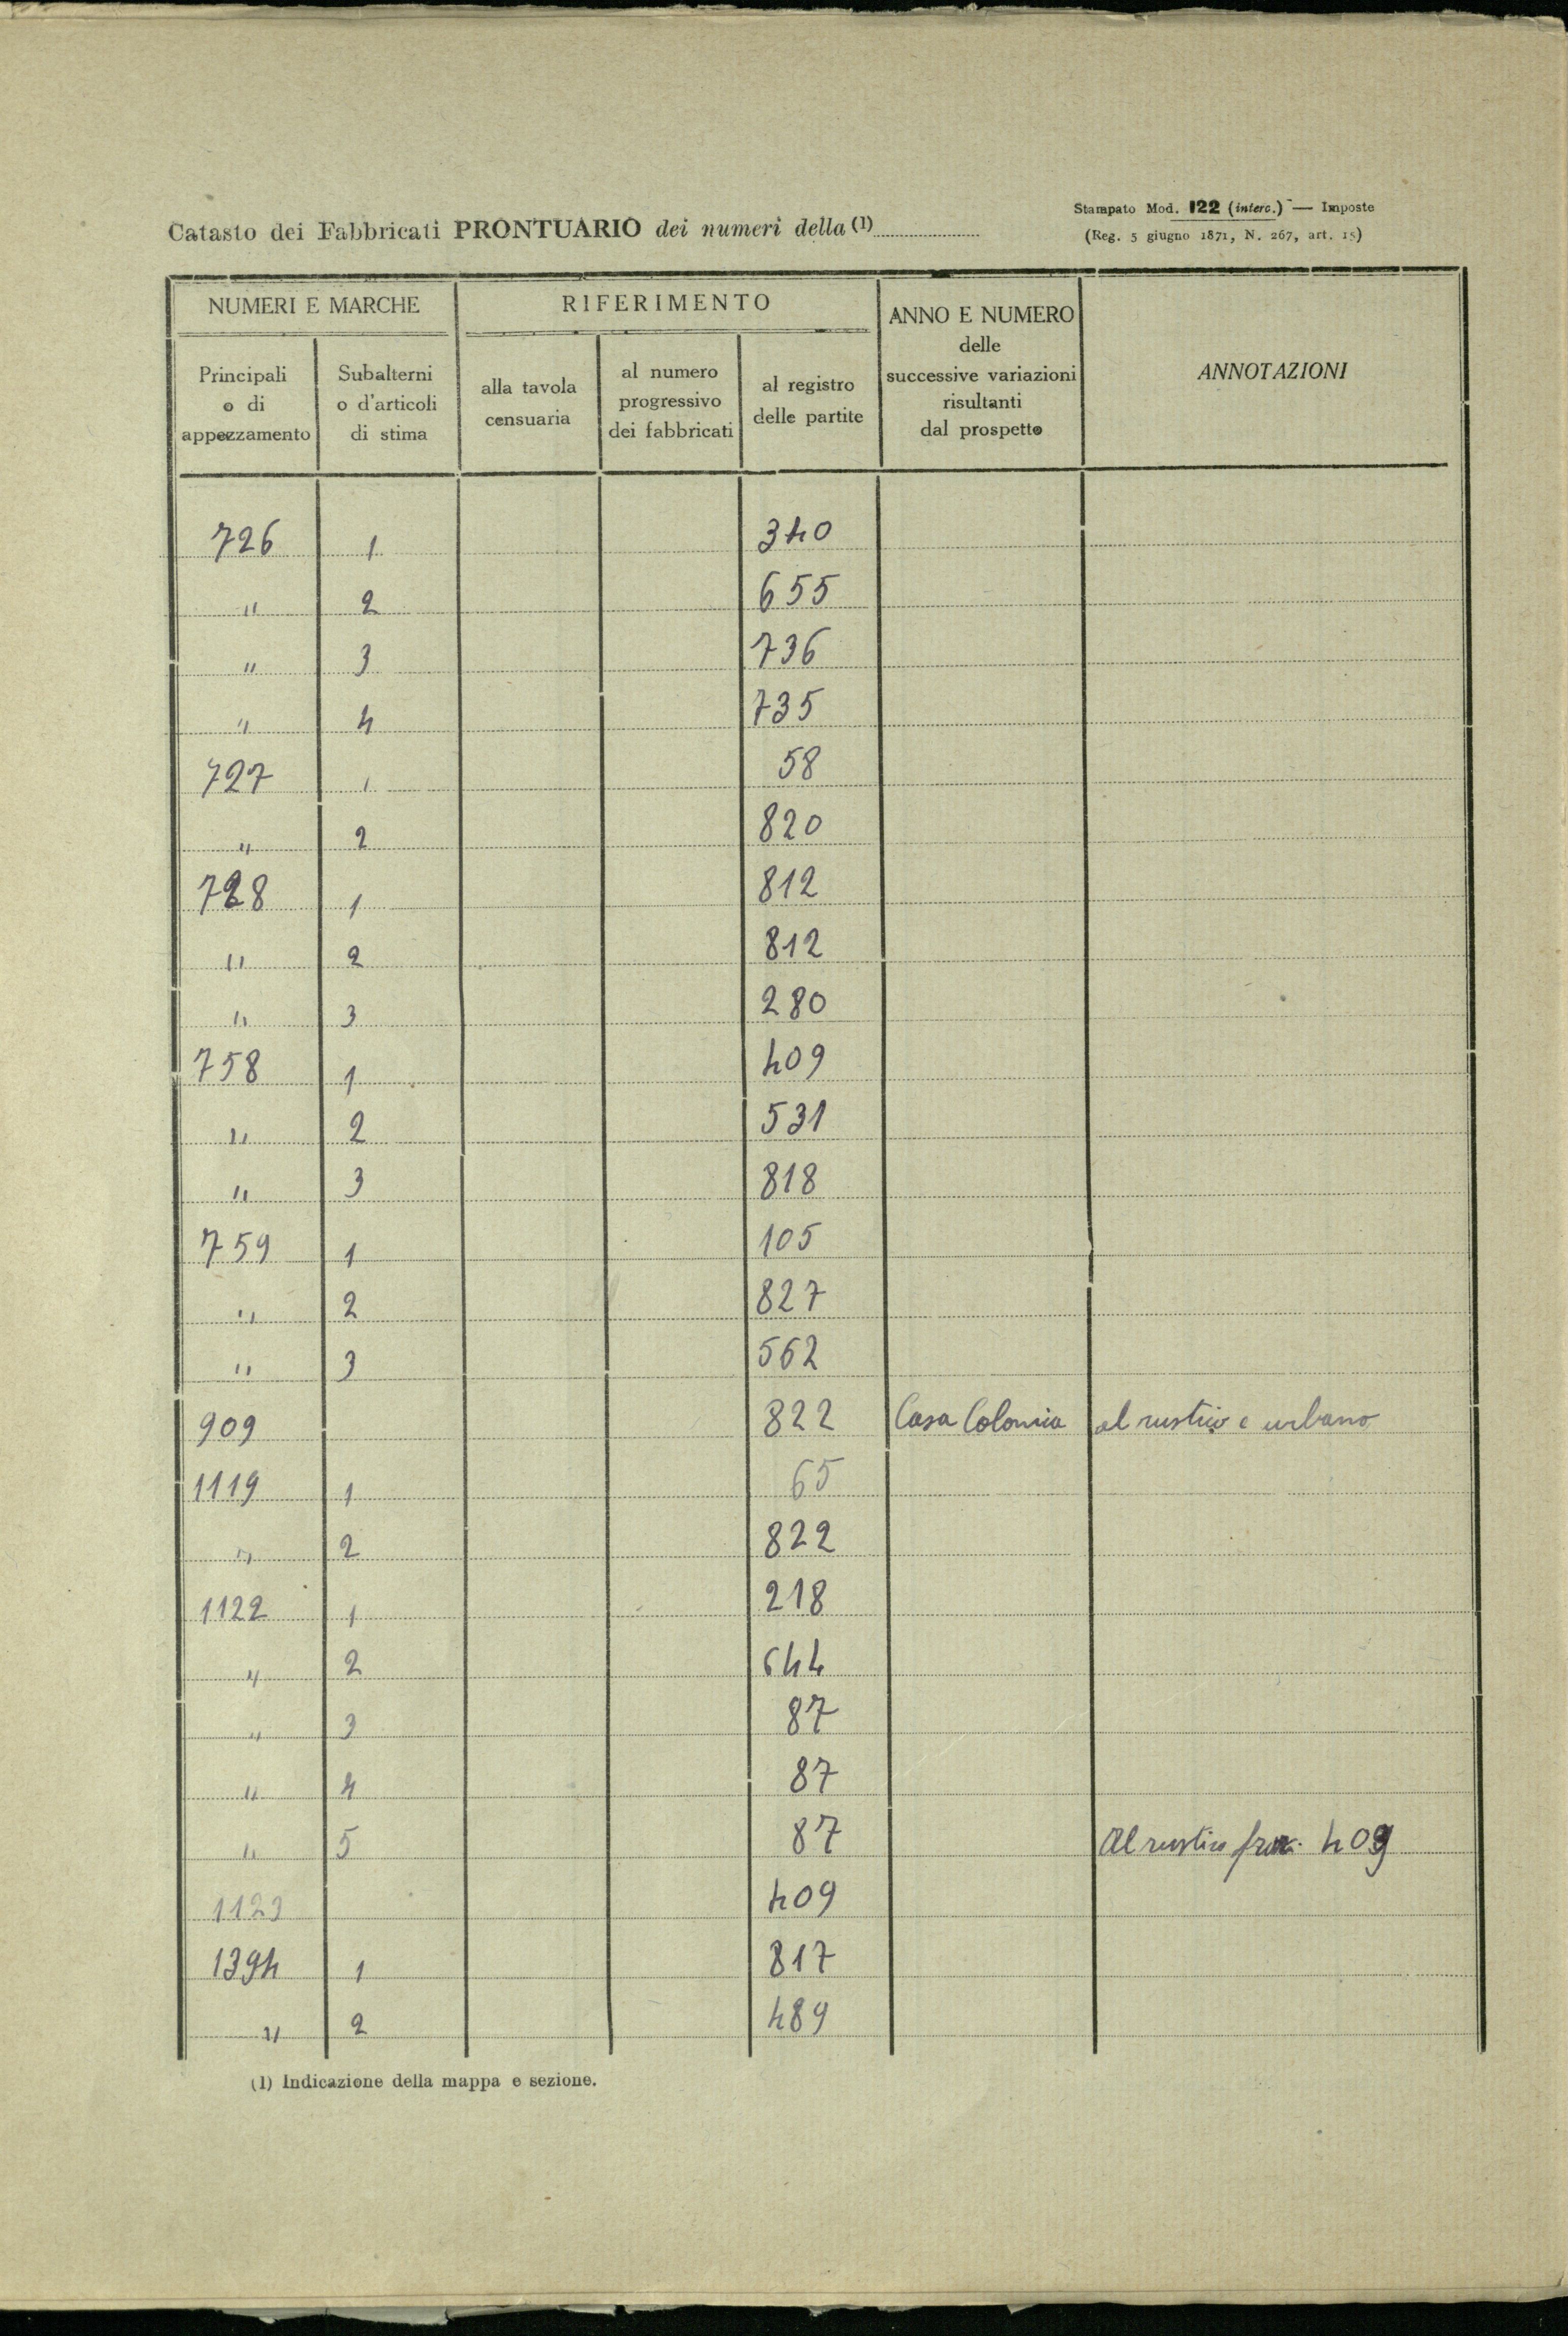 Catasto dei Fabbricati PRONTUARIO dei numeri della (1)
Stampato Mod. 122 (interc.) — Imposte
(Reg. 5 giugno 1871, N. 267, art. 15)
NUMERI E MARCHE
RIFERIMENTO
ANNO E NUMERO
delle
successive variazioni
risultanti
dal prospetto
ANNOTAZIONI
Principali
o di
appezzamento
Subalterni
o d'articoli
di stima
alla tavola
censuaria
al numero
progressivo
dei fabbricati
al registro
delle partite
726 1 340
" 2 655
" 3 736
" 4 735
727 1 58
" 2 820
728 1 812
" 2 812
" 3 280
758 1 409
" 2 531
" 3 818
759 1 105
" 2 827
" 3 562
909 822 Casa Colonica al rustico e urbano
1119 1 65
" 2 822
1122 1 218
" 2 644
" 3 87
" 4 87
" 5 87 Al rustico 409
1123 409
1394 1 817
" 2 489
(1) Indicazione della mappa e sezione.